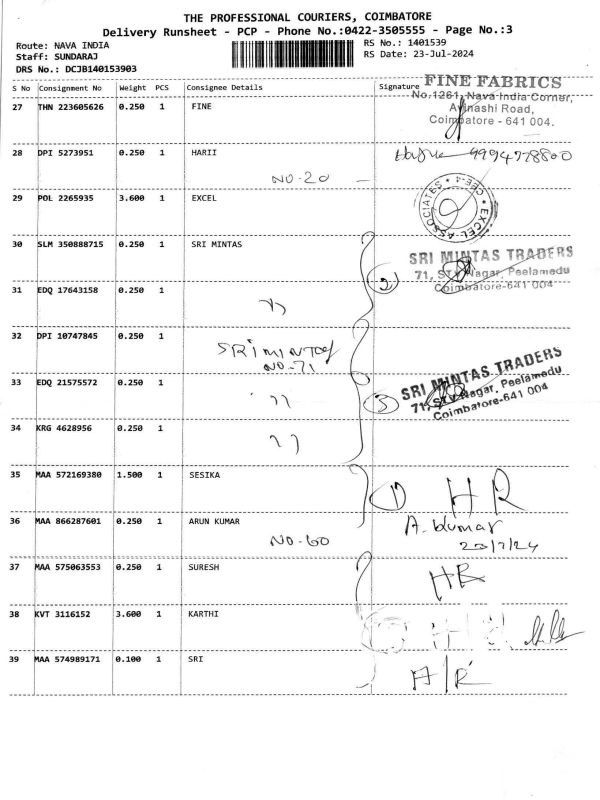 THE PROFESSIONAL COURIERS, COIMBATORE
Delivery Runsheet - PCP - Phone No.:0422-3505555 - Page No.:3
Route: NAVA INDIA RS No.: 1401539
Staff: SUNDARAJ RS Date: 23-Jul-2024
DRS No.: DCJB140153903
S No Consignment No Weight PCS Consignee Details Signature
FINE FABRICS
No.1261, Nava India Corner,
27 THN 223605626 0.250 1 FINE
Avinashi Road,
Coimbatore - 641 004.
28 DPI 5273951 0.250 1 HARII 9994778800
NO-20
29 POL 2265935 3.600 1 EXCEL
EXCEL ASSOCIATES * CBE-4 *
30 SLM 350888715 0.250 1 SRI MINTAS
SRI MINTAS TRADERS
2 71, STV Nagar, Peelamedu
Coimbatore-641 004
31 EDQ 17643158 0.250 1
"
32 DPI 10747845 0.250 1
SRI MINTAS
NO-71
SRI MINTAS TRADERS
33 EDQ 21575572 0.250 1
" 3 71, STV Nagar, Peelamedu
Coimbatore-641 004
34 KRG 4628956 0.250 1
"
35 MAA 572169380 1.500 1 SESIKA
1 HR
36 MAA 866287601 0.250 1 ARUN KUMAR A. Kumar
NO-60 23/7/24
37 MAA 575063553 0.250 1 SURESH
HR
38 KVT 3116152 3.600 1 KARTHI
39 MAA 574989171 0.100 1 SRI